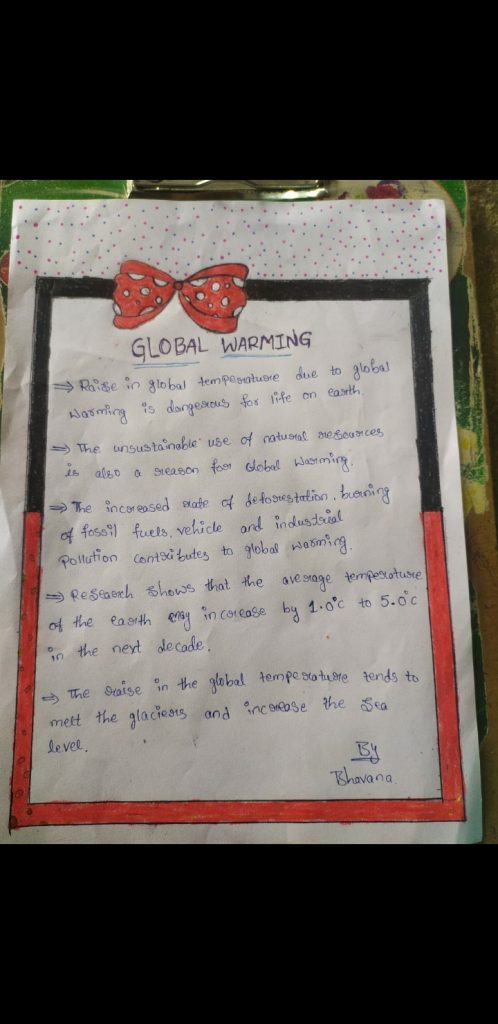 GLOBAL WARMING
⇒ Raise in global temperature due to global
warming is dangerous for life on earth.
⇒ The unsustainable use of natural resources
is also a reason for Global Warming.
⇒ The increased rate of deforestation, burning
of fossil fuels, vehicle and industrial
pollution contributes to global warming.
⇒ Research shows that the average temperature
of the earth may increase by 1.0°c to 5.0°c
in the next decade.
⇒ The raise in the global temperature tends to
melt the glaciers and increase the Sea
level.
By
Bhavana.